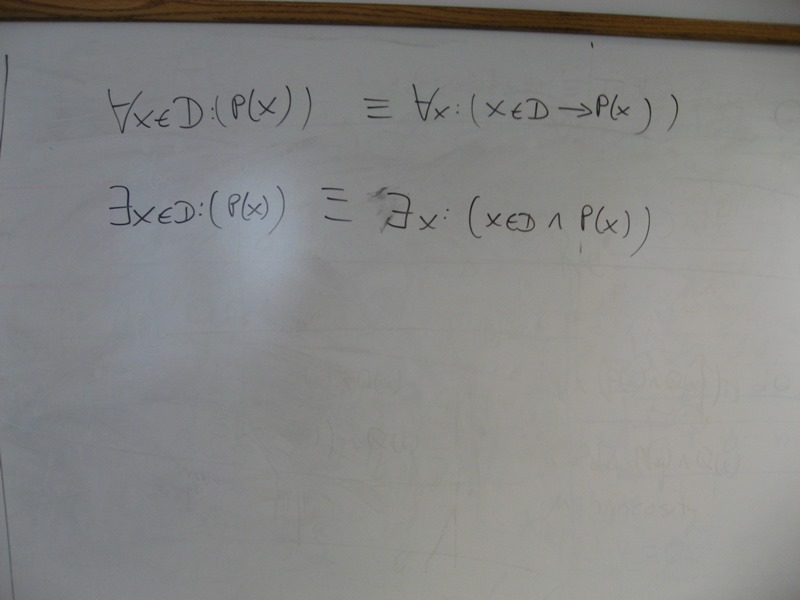 ∀x∈D:(P(x)) ≡ ∀x:(x∈D→P(x))
∃x∈D:(P(x)) ≡ ∃x:(x∈D∧P(x))